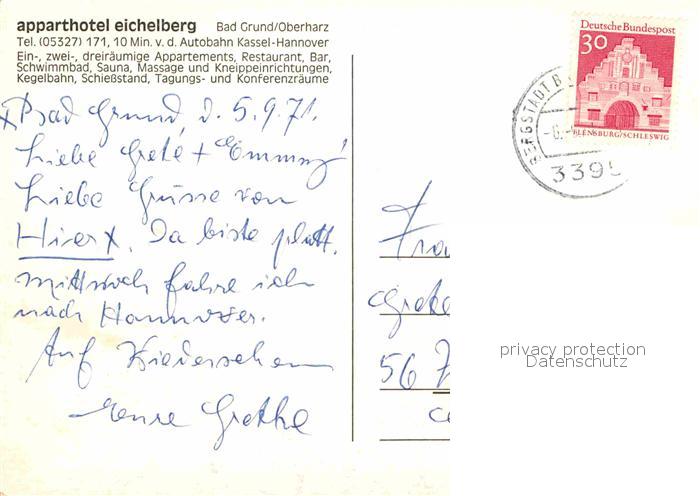 apparthotel eichelberg Bad Grund/Oberharz
Tel. (05327) 171, 10 Min. v. d. Autobahn Kassel-Hannover
Ein-, zwei-, dreiräumige Appartements, Restaurant, Bar,
Schwimmbad, Sauna, Massage und Kneippeinrichtungen,
Kegelbahn, Schießstand, Tagungs- und Konferenzräume
x Bad Grund, d. 5.9.71.
Liebe Grete + Emmy!
Liebe Grüsse von
Hier x. Da biste platt.
Mittwoch fahre ich
nach Hannover.
Auf Wiedersehen
Eure Grethe
Deutsche Bundespost
30
FLENSBURG/SCHLESWIG
BERGSTADT B
-6.
3395
Fra
Grete
56
privacy protection
Datenschutz